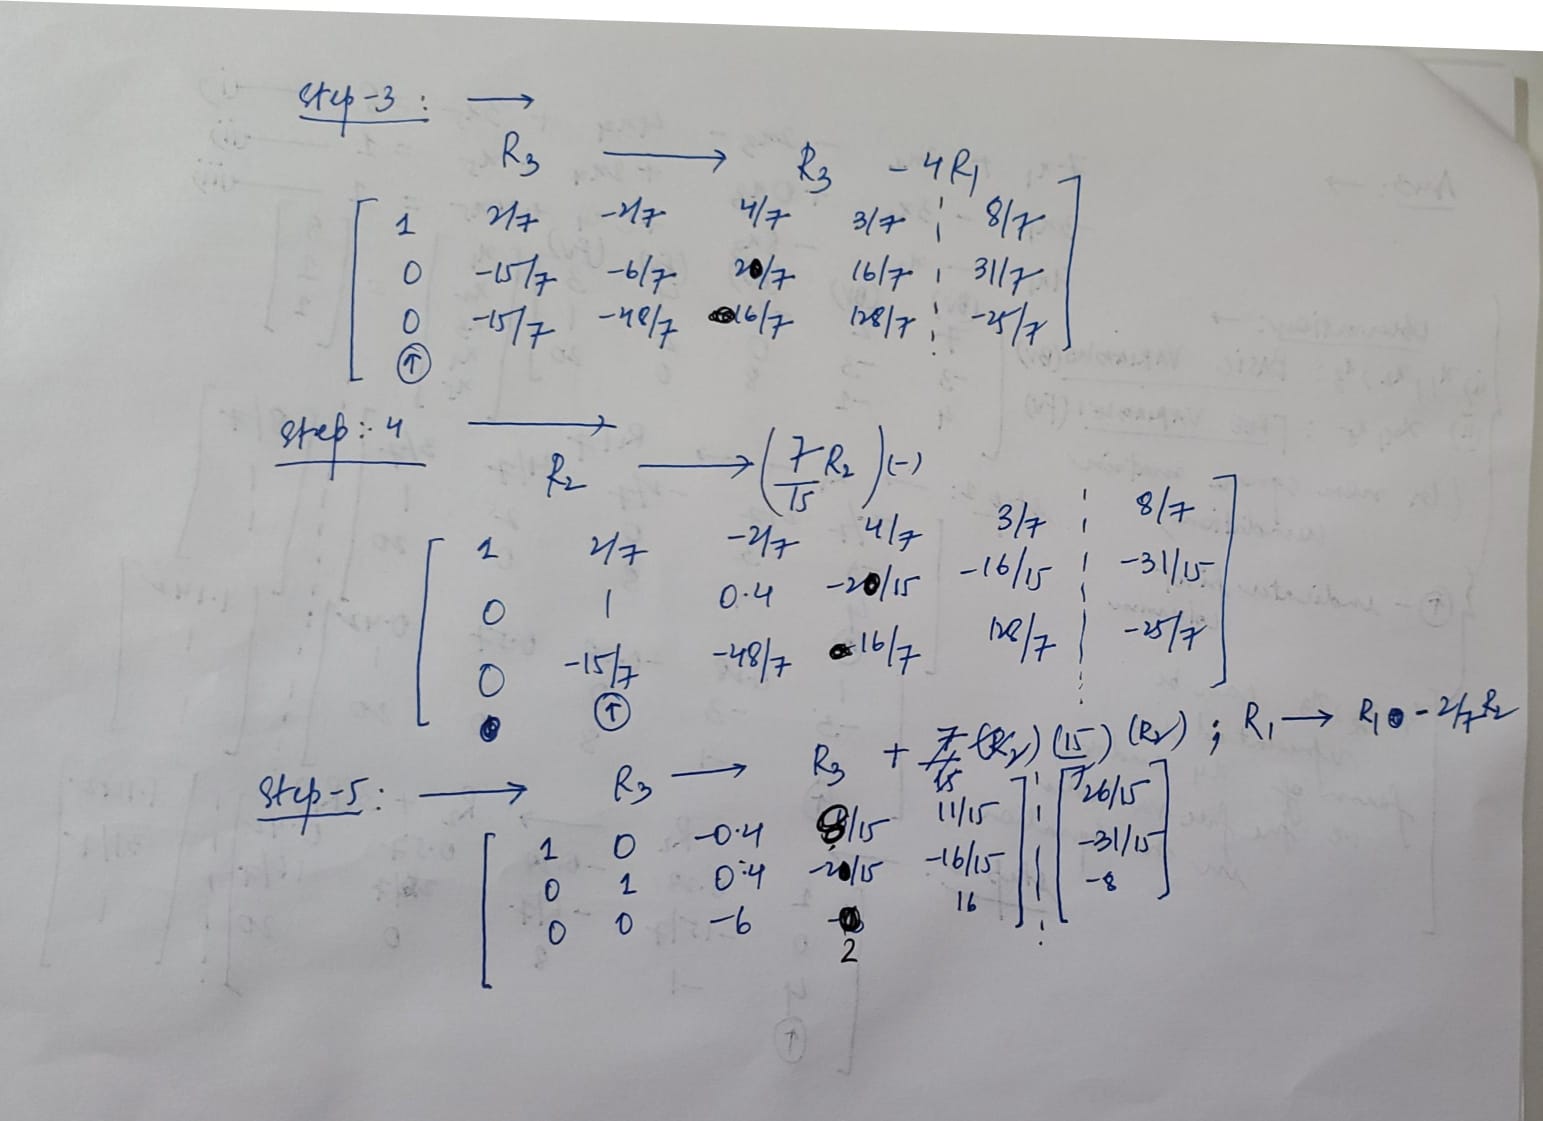 Step-3 : →
R₃ → R₃ - 4R₁
1 2/7 -2/7 4/7 3/7 8/7
0 -15/7 -6/7 20/7 16/7 31/7
0 -15/7 -48/7 16/7 128/7 -25/7
↑
Step: 4 →
R₂ → (7/15 R₂) (-)
1 2/7 -2/7 4/7 3/7 8/7
0 1 0.4 -20/15 -16/15 -31/15
0 -15/7 -48/7 16/7 128/7 -25/7
↑
Step-5: → R₃ → R₃ + (15/7) (R₂) ; R₁ → R₁ - 2/7 R₂
1 0 -0.4 8/15 11/15 26/15
0 1 0.4 -20/15 -16/15 -31/15
0 0 -6 2 16 -8